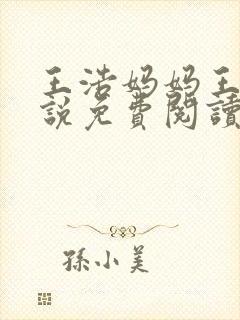 王浩妈妈王
說免費閱讀
孫小美